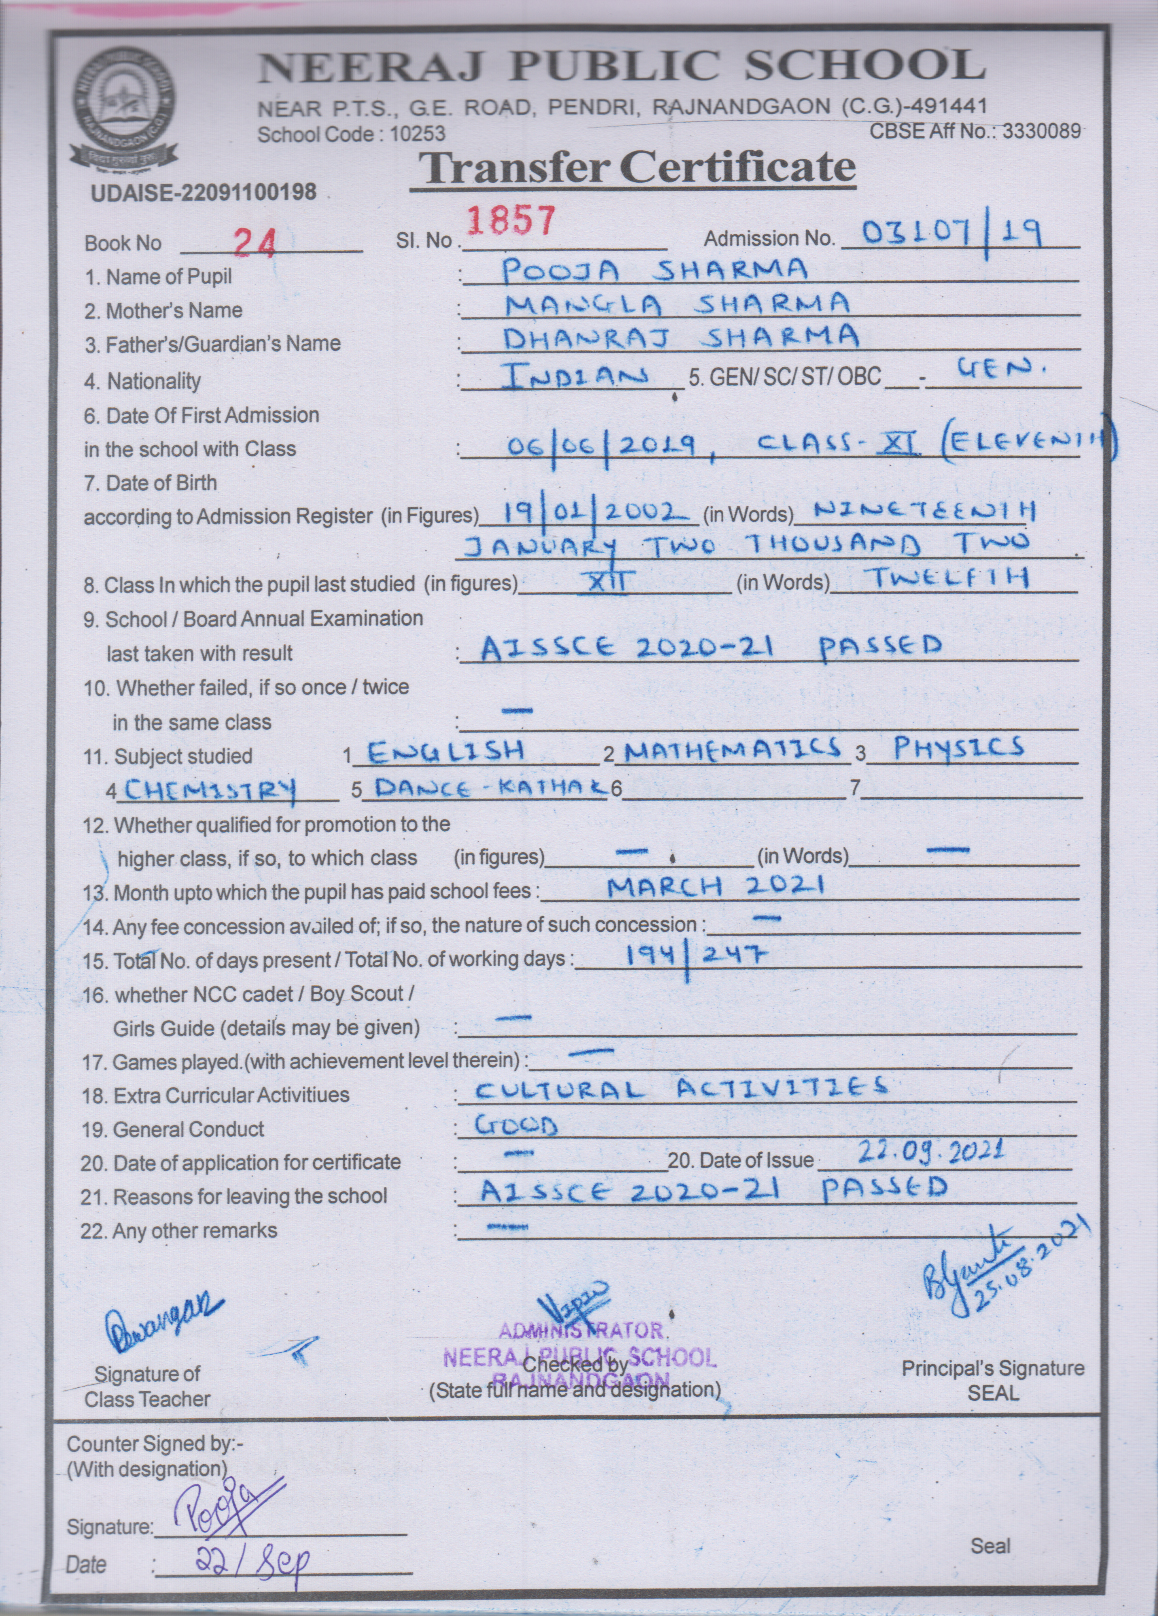 NEERAJ PUBLIC SCHOOL
NEAR P.T.S., G.E. ROAD, PENDRI, RAJNANDGAON (C.G.)-491441
School Code : 10253 CBSE Aff No.: 3330089
Transfer Certificate
UDAISE-22091100198
Book No 24 Sl. No. 1857 Admission No. 03107/19
1. Name of Pupil : POOJA SHARMA
2. Mother's Name : MANGLA SHARMA
3. Father's/Guardian's Name : DHANRAJ SHARMA
4. Nationality : INDIAN 5. GEN/ SC/ ST/ OBC - GEN.
6. Date Of First Admission
in the school with Class : 06/06/2019, CLASS-XI (ELEVENTH)
7. Date of Birth
according to Admission Register (in Figures) 19/01/2002 (in Words) NINETEENTH
JANUARY TWO THOUSAND TWO
8. Class In which the pupil last studied (in figures) XII (in Words) TWELFTH
9. School / Board Annual Examination
last taken with result : AISSCE 2020-21 PASSED
10. Whether failed, if so once / twice
in the same class : —
11. Subject studied 1 ENGLISH 2 MATHEMATICS 3 PHYSICS
4 CHEMISTRY 5 DANCE-KATHAK 6 7
12. Whether qualified for promotion to the
higher class, if so, to which class (in figures) — (in Words) —
13. Month upto which the pupil has paid school fees : MARCH 2021
14. Any fee concession availed of; if so, the nature of such concession : —
15. Total No. of days present / Total No. of working days : 194/247
16. whether NCC cadet / Boy Scout /
Girls Guide (details may be given) : —
17. Games played.(with achievement level therein) : —
18. Extra Curricular Activitiues : CULTURAL ACTIVITIES
19. General Conduct : GOOD
20. Date of application for certificate : — 20. Date of Issue 22.09.2021
21. Reasons for leaving the school : AISSCE 2020-21 PASSED
22. Any other remarks : —
25.08.2021
Dewangan Vipin
ADMINISTRATOR
NEERAJ PUBLIC SCHOOL
RAJNANDGAON
Signature of Checked by Principal's Signature
Class Teacher (State full name and designation) SEAL
Counter Signed by:-
(With designation)
Signature: Pooja
Seal
Date : 22/Sep